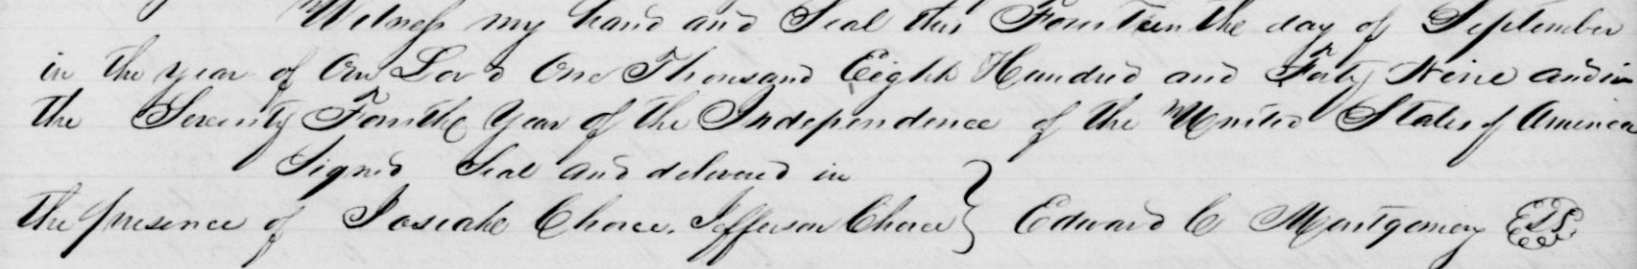 Witness my hand and Seal this Fourteenth day of September
in the year of Our Lord One Thousand Eight Hundred and Forty Nine and in
the Seventy Fourth Year of the Independence of the United States of America
Signed Seal and delivered in
the presence of Josiah Choice. Jefferson Choice } Edward C Montgomery LS